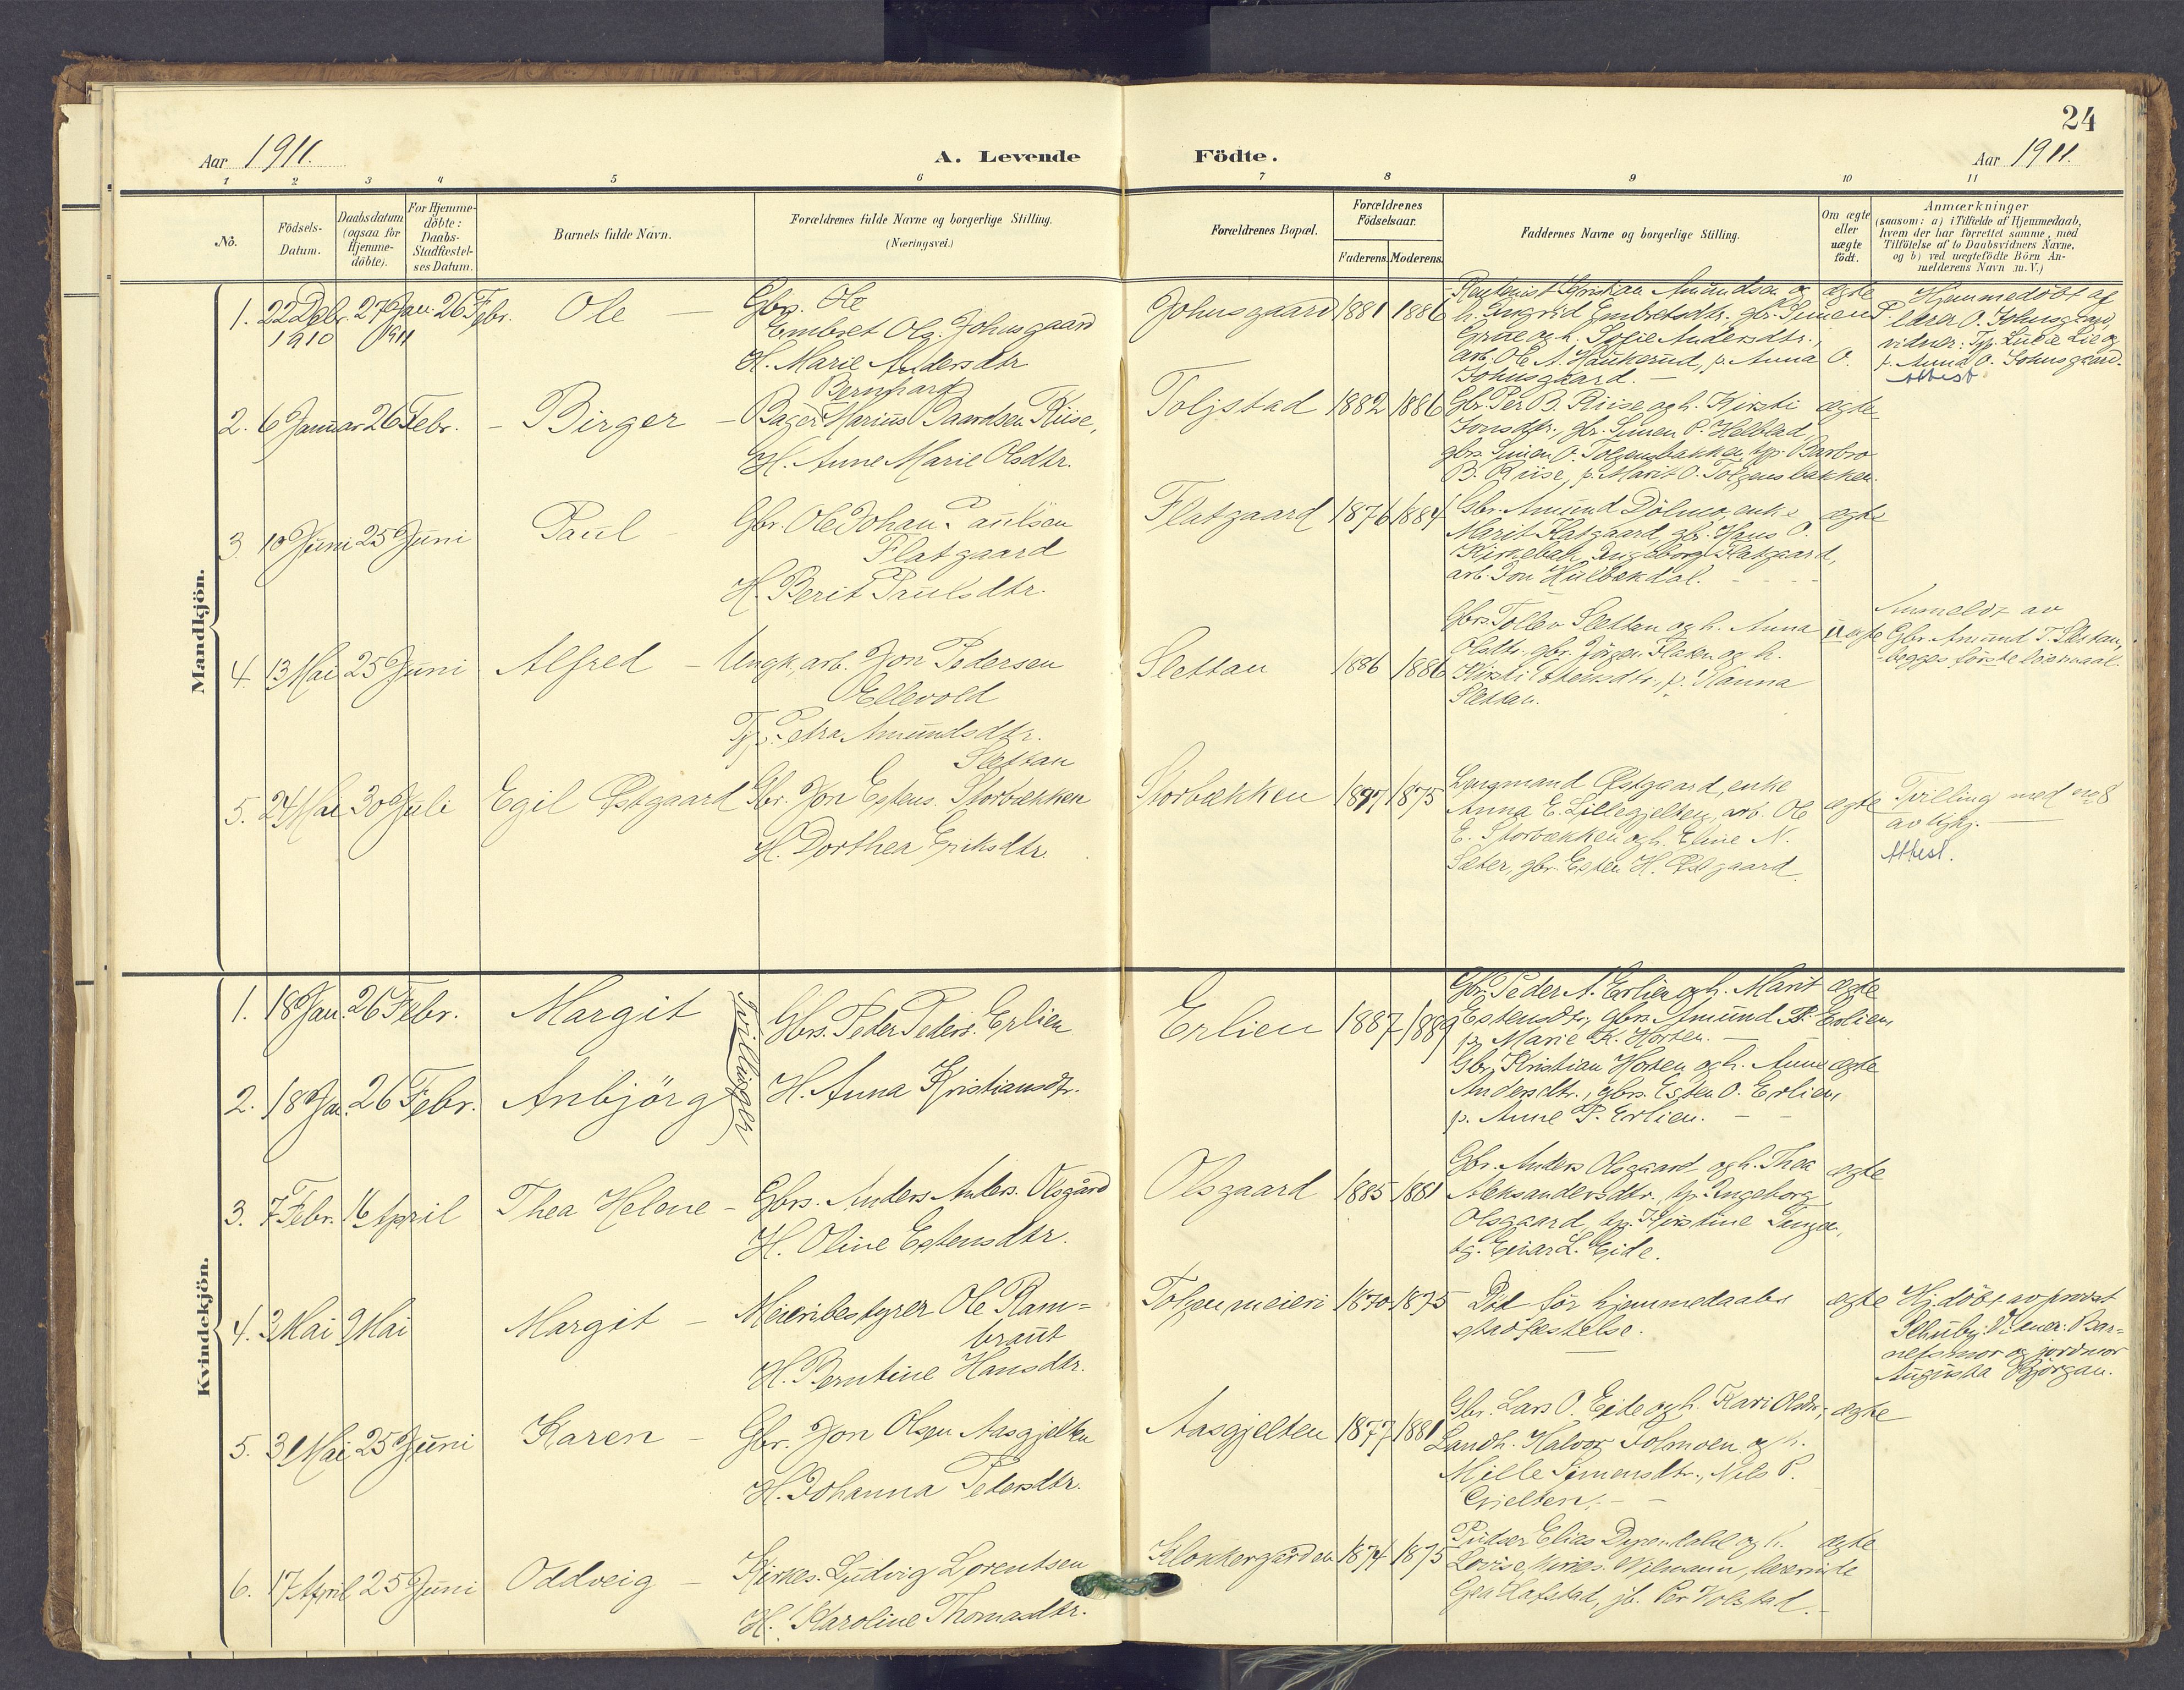 24
Aar 1911.
A. Levende
Födte.
Aar 1911.
1 2 3 4 5 6 7 8 9 10 11
No.
Födsels-
Datum.
Daabsdatum
(ogsaa for
Hjemme-
döbte).
For Hjemme-
döbte:
Daabs-
Stadfæstel-
ses Datum.
Barnets fulde Navn.
Forældrenes fulde Navne og borgerlige Stilling.
(Næringsvei.)
Forældrenes Bopæl.
Forældrenes
Födselsaar.
Faderens. Moderens.
Faddernes Navne og borgerlige Stilling.
Om ægte
eller
uægte
födt.
Anmærkninger
(saasom: a) i Tilfælde af Hjemmedaab,
hvem der har forrettet samme, med
Tilföielse af to Daabsvidners Navne,
og b) ved uægtefödte Börn An-
melderens Navn m. V.)
Mandkjön.
1. 22 Debr. 1910 27 Jan. 1911 26 Febr. Ole —
Gbr. Ole
Embret Olg. Johnsgaard
H. Marie Andersdtr
Johnsgaard 1881 1886
Kristian Amundsen og
h. Ingrid Embretsdtr. gbr. Simen P.
Grue og h. Sofie Andersdtr.,
arb. Ole A. Haukerud, p. Anna O.
Johnsgaard. —
ægte
Hjemmedöbt af
lærer O. Johnsgaard,
vidner: Tp. Lucie Lie og
p. Anna O. Johnsgaard.
Attest
2. 6 Januar 26 Febr. — Birger —
Bernhard
Bager Marius Baardsen Riise,
H. Anne Marie Olsdtr.
Toljstad 1882 1886
Gbr. Per B. Riise og h. Kirsti
Jonsdtr., gbr. Simen P. Helblad,
gbrs. Simen O. Tolgensbakken, tp. Barbro
B. Riise, p. Marit O. Tolgensbakken.
ægte
3 10 Juni 25 Juni Paul —
Gbr. Ole Johan Paulsen
Flatgaard
H. Berit Paulsdtr.
Flatgaard 1876 1884
Gbr. Amund Dölmo, enke
Marit Flatgaard, gbr. Hans O.
Kirkebak, Ingeborg Flatgaard,
arb. Jon Hulbækdal.
ægte
4. 13 Mai 25 Juni Alfred —
Ungk. arb. Jon Pedersen
Ellevold
Tp. Petra Amundsdtr.
Slettan
Slettan 1886 1886
Gbrs. Tollev Slettan og h. Anna
Olsdtr. gbr. Jörgen Flaken og h.
Kirsti Estensdtr., p. Hanna
Slettan.
uægte
Anmeldt av
Gbr. Amund T. Slettan,
begges förste leiermaal.
5. 24 Mai 30 Juli Egil Østgaard
Gbr. Jon Estens. Storbækken
H. Dorthea Eriksdtr.
Storbækken 1877 1875
Lensmand Østgaard, enke
Anna E. Lillegjelten, arb. Ole
E. Storbækken og h. Eline N.
Sæter, gbr. Esten H. Østgaard
ægte
Tvilling med no 8
av kvkj.
Attest.
Kvindekjön.
1. 18 Jan. 26 Febr. Margit
Tvillinger
Gbrs. Peder Peders. Erlien
Erlien 1887 1889
Gbr. Peder A. Erlien og h. Marit
Estensdtr., gbrs. Amund P. Erlien,
p. Marie K. Horten. —
ægte
2. 18 Jan. 26 Febr. Anbjörg
H. Anna Kristiansdtr.
Gbr. Kristian Horten og h. Anne
Andersdtr., gbrs. Esten O. Erlien,
p. Anne P. Erlien. —
ægte
3. 7 Febr. 16 April Thea Helene —
Gbrs. Anders Anders. Olsgård
H. Oline Estensdtr.
Olsgaard 1885 1881
Gbr. Anders Olsgaard og h. Thea
Aleksandersdtr., tp. Ingeborg
Olsgaard, tp. Kirstine Tunge,
tg. Einar L. Eide.
ægte
4. 3 Mai 9 Mai Margit —
Meieribestyrer Ole Ram-
braut
H. Berntine Hansdtr.
Tolgen meieri 1870 1875
Död för hjemmedaabs
stadfæstelse.
ægte
Hj. döbt av provst
Barnetsmor og jordmor
Augusta Bjørgan.
5. 31 Mai 25 Juni Karen —
Gbr. Jon Olsen Aasgjelten
H. Johanna Pedersdtr.
Aasgjelten 1877 1881
Gbr. Lars O. Eide og h. Kari Olsdtr.,
Landh. Halvor Tolmoen og h.
Mille Simensdtr., Nils P.
Gjelten. —
ægte
6. 17 April 25 Juni Oddveig —
Kirkes. Ludvig Lorentsen
H. Karoline Thomasdtr.
Klokkergården 1874 1875
Elias Dypendahl og h.
Lovise Wilmann, lærerinde
Gea Hafstad, jb. Per Volstad.
ægte